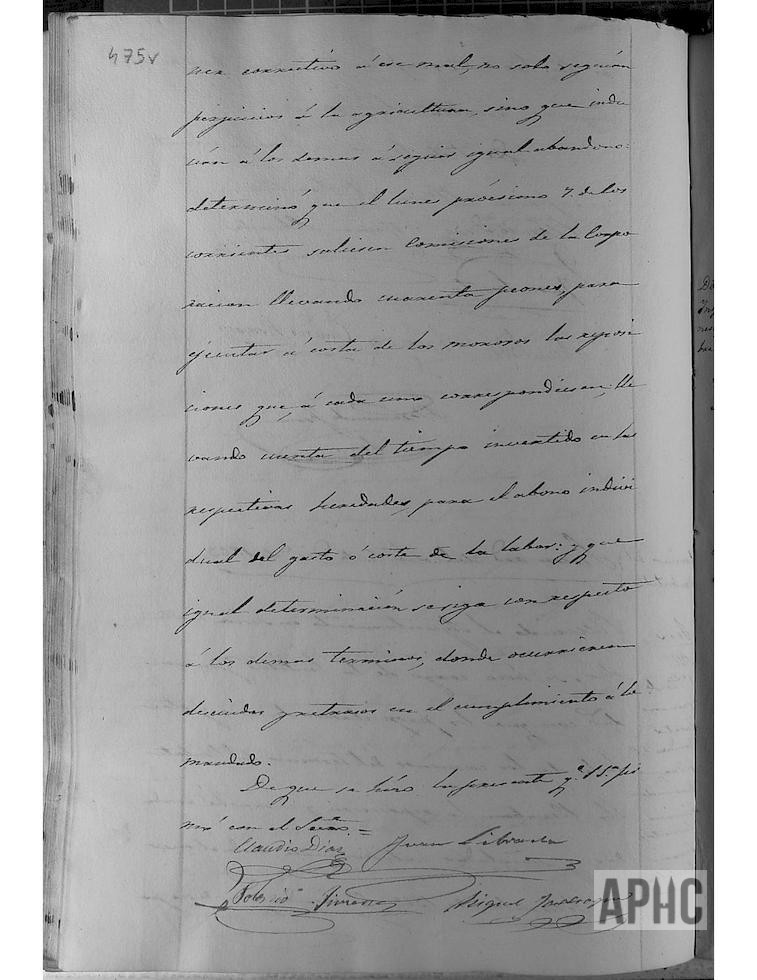 475v
ner correctivo á ese mal, no solo seguirán
perjuicios á la agricultura, sino que indu
cirán á los demas á seguir igual abandono:
determinó que el lunes próximo 7. de los
corrientes saliesen Comisiones de la Corpo
racion llevando cuarenta peones, para
ejecutar á costa de los morosos las reposi
ciones que á cada uno correspondiesen, lle
vando cuenta del tiempo invertido en las
respectivas heredades, para el abono indivi
dual del gasto ó coste de la labor: y que
igual determinación se siga con respecto
á los demas terminos, donde ocurriesen
descuidos y retrasos en el cumplimiento á lo
mandado.
De que se hizo la presente q.e S.Sª fir
mó con el Srio =
Claudio Dias Juan
Miguel
APHC